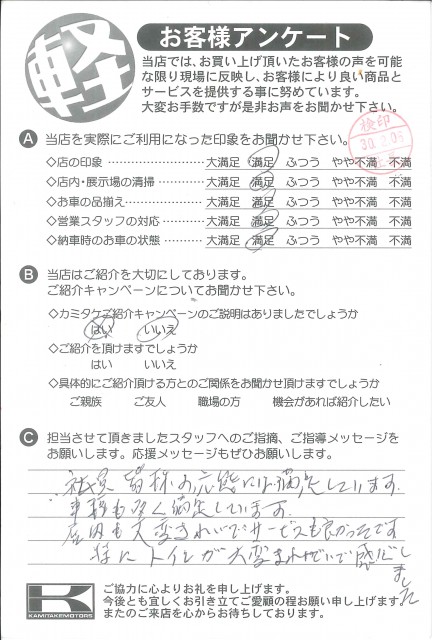 軽
お客様アンケート
当店では、お買い上げ頂いたお客様の声を可能
な限り現場に反映し、お客様により良い商品と
サービスを提供する事に努めています。
大変お手数ですが是非お声をお聞かせ下さい。
検印
30.2.05
A 当店を実際にご利用になった印象をお聞かせ下さい。
◇店の印象 大満足 満足 ふつう やや不満 不満
◇店内・展示場の清掃 大満足 満足 ふつう やや不満 不満
◇お車の品揃え 大満足 満足 ふつう やや不満 不満
◇営業スタッフの対応 大満足 満足 ふつう やや不満 不満
◇納車時のお車の状態 大満足 満足 ふつう やや不満 不満
B 当店はご紹介を大切にしております。
ご紹介キャンペーンについてお聞かせ下さい。
◇カミタケご紹介キャンペーンのご説明はありましたでしょうか
はい いいえ
◇ご紹介を頂けますでしょうか
はい いいえ
◇具体的にご紹介頂ける方とのご関係をお聞かせ頂けますでしょうか
ご親族 ご友人 職場の方 機会があれば紹介したい
C 担当させて頂きましたスタッフへのご指摘、ご指導メッセージを
お願いします。応援メッセージもぜひお願いします。
社員皆様の応態には満足しています。
車種も多く満足しています。
店内も大変きれいでサービスも良かったです
特にトイレが大変きれいで感心しました
K
KAMITAKEMOTORS
ご協力に心よりお礼を申し上げます。
今後とも宜しくお引き立てご愛顧の程お願い申し上げます。
またのご来店を心からお待ちしております。